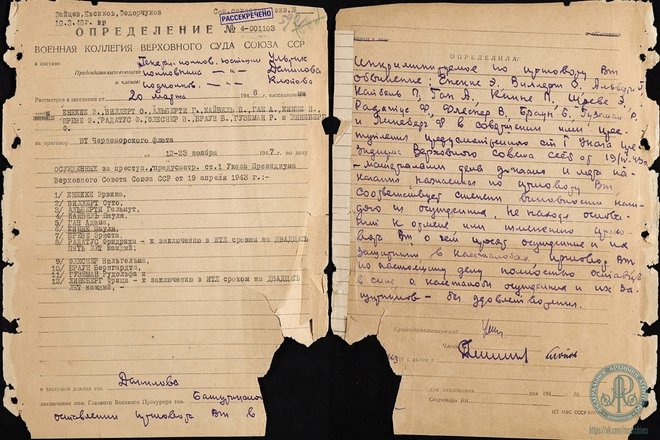 Зайцев, Евсиков, Федорчуков
РАССЕКРЕЧЕНО
ОПРЕДЕЛЕНИЕ № 4-001103
ВОЕННАЯ КОЛЛЕГИЯ ВЕРХОВНОГО СУДА СОЮЗА ССР
в составе:
Председательствующего Ульрих
и членов: Данилова
Рассмотрев в заседании от 20 марта 1948 г. кассационные
ЕНЕККЕ Э., ВИЛЛЕРТ О., АЛЬБЕРТИ Г., КАЙБЕЛЬ П., ГАН А., КИННЕ П.,
О., ФЛЕСНЕР В., БРАУН Б., ГУЗЕМАН Р. и
на приговор ВТ Черноморского флота
12-23 ноября 1947 г. по делу
ОСУЖДЕННЫХ за преступ. предусмотр. ст.1 Указа Президиума
Верховного Совета Союза ССР от 19 апреля 1943 г.:-
1/ ЕНЕККЕ Эрвина,
2/ ВИЛЛЕРТ Отто,
3/ АЛЬБЕРТИ Гельмут,
4/ КАЙБЕЛЬ Пауля,
5/ ГАН Адама,
6/ КИННЕ Пауля,
7/ ШРЕВЕ Эрнста,
8/ РАДАТУС Фридриха - к заключению в ИТЛ сроком на ДВАДЦАТЬ
ПЯТЬ ЛЕТ каждый,
9/ ФЛЕСНЕР Вильгельма,
10/ БРАУН Бернгардта,
11/ ГУЗЕМАН Рудольфа и
12/ ЛИНЕБЕРГ Фрица - к заключению в ИТЛ сроком на ДВАДЦАТЬ
ЛЕТ каждый, -
Заслушав доклад тов. Данилова
заключение пом. Главного Военного Прокурора тов.
оставлении приговора ВТ в
ОПРЕДЕЛИЛА:
Инкриминируемое по приговору ВТ
обвинение: Енекке Э., Виллерт О., Альберти Г.,
Кайбель П., Ган А., Кинне П., Шреве Э.,
Радатус Ф., Флеснер В., Браун Б., Гуземан Р.
и Линеберг Ф. в совершении ими прес-
туплений, предусмотренных ст. 1 Указа Пре-
зидиума Верховного Совета СССР от 19/IV-43 г.
материалами дела доказано и мера на-
казания назначенная по приговору ВТ,
соответствует степени виновности каж-
дого из осужденных. Не находя основа-
ний к отмене или изменению приго-
вора ВТ о чем просят осужденные и их
защитники в кассжалобах приговор ВТ
по настоящему делу полностью оставить
в силе, а кассжалобы осужденных и их за-
щитников - без удовлетворения.
Председательствующий
Члены
Секретарь ВК
https://vk.com/rusarchives